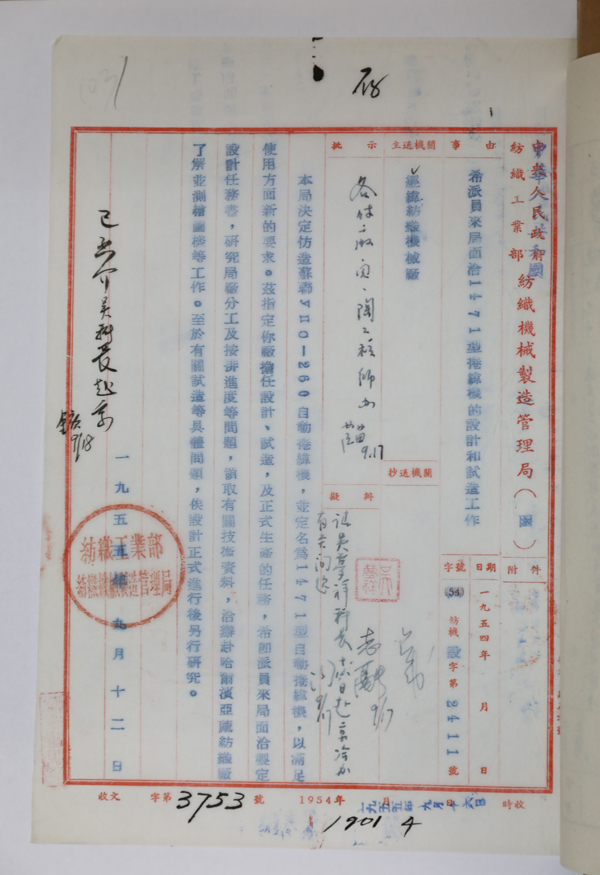 存
中華人民共和國
紡織工業部紡織機械製造管理局(函)
事由
希派員來局面洽1471型捲緯機的設計和試造工作
附件
日期
一九五四年 月 日
字號
(54)紡機設字第2411號
主送機關
經緯紡織機械廠
抄送機關
批示
9.17
擬辦
本局決定仿造蘇聯УПО—260自動捲緯機,並定名為1471型自動捲緯機,以滿足
使用方面新的要求。茲指定你廠擔任設計、試造,及正式生產的任務,希即派員來局面洽製定
設計任務書,研究局廠分工及按排進度等問題,領取有關技術資料,洽辦赴哈爾濱亞麻紡織廠
了解並測繪圖樣等工作。至於有關試造等具體問題,俟設計正式進行後另行研究。
科長赴京
9/18
一九五五年九月十二日
紡織工業部
紡織機械製造管理局
收文 字第3753號 1954年 月 日 時收
一九五五年九月十六日
1901 4